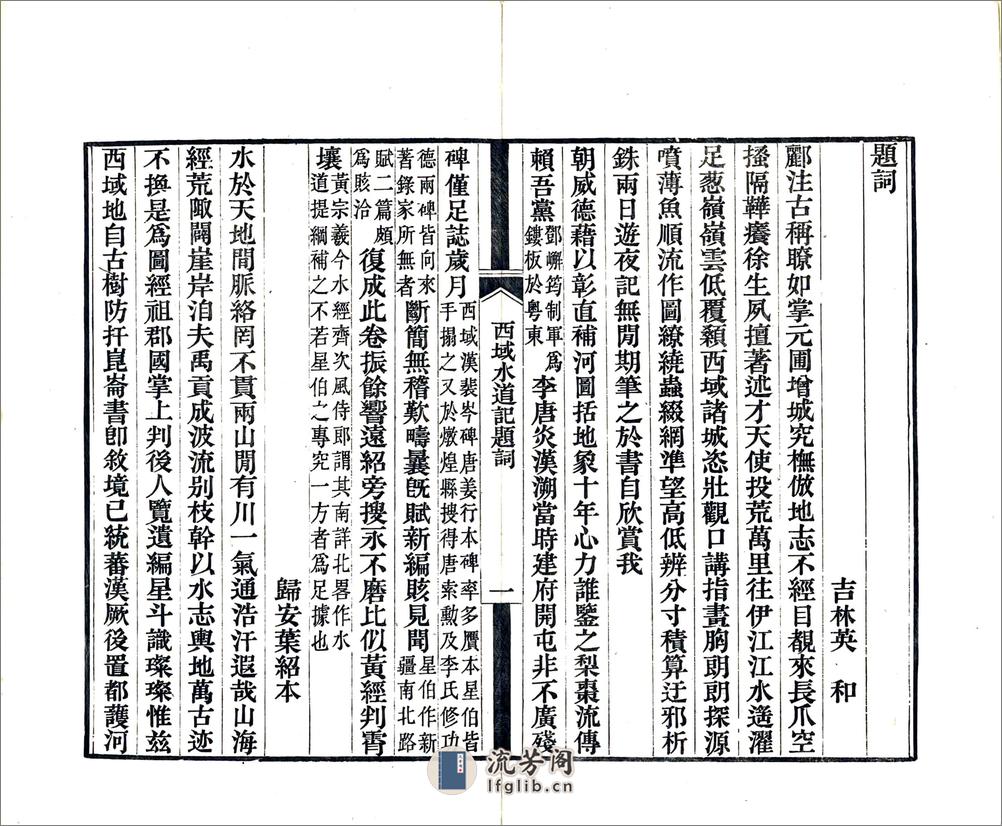 題詞
吉林英　和
酈注古稱瞭如掌元圃增城究橅倣地志不經目覩來長爪空
搔隔鞾癢徐生夙擅著述才天使投荒萬里往伊江江水遙濯
足蔥嶺嶺雲低覆顙西域諸城恣壯觀口講指畫胸朗朗探源
噴薄魚順流作圖繚繞蟲綴網準望高低辨分寸積算迂邪析
銖兩日遊夜記無閒期筆之於書自欣賞我
朝威德藉以彰直補河圖括地象十年心力誰鑒之梨棗流傳
賴吾黨鄧嶰筠制軍爲鏤板於粵東李唐炎漢溯當時建府開屯非不廣殘
西域水道記題詞
一
碑僅足誌歲月西域漢裴岑碑唐姜行本碑率多贋本星伯皆手搨之又於燉煌縣搜得唐索勳及李氏修功德兩碑皆向來著錄家所無者斷簡無稽歎疇曩旣賦新編賅見聞星伯作新疆南北路賦二篇頗爲賅洽復成此卷振餘響遠紹旁搜永不磨比似黃經判霄
壤黃宗羲今水經齊次風侍郎謂其南詳北畧作水道提綱補之不若星伯之專究一方者爲足據也
歸安葉紹本
水於天地閒脈絡罔不貫兩山閒有川一氣通浩汗遐哉山海
經荒陬闢崖岸洎夫禹貢成波流别枝幹以水志輿地萬古迹
不換是爲圖經祖郡國掌上判後人覽遺編星斗識璨璨惟兹
西域地自古樹防扞崑崙書卽敘境已統蕃漢厥後置都護河
流芳阁
lfglib.cn